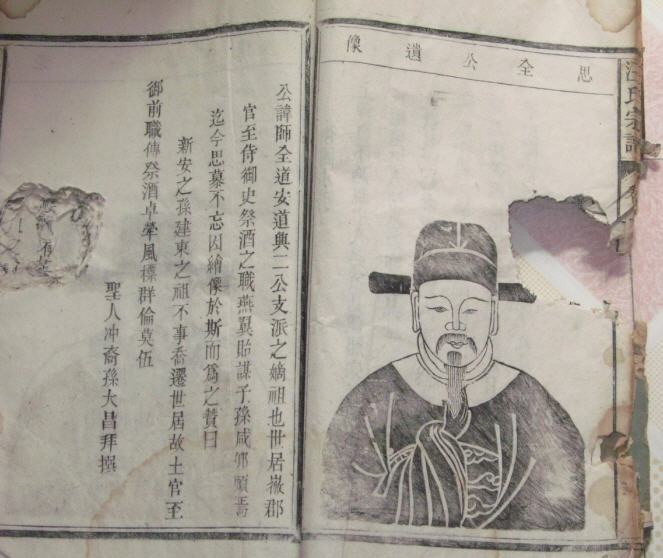 氏宗譜
思全公遺像
公諱師全道安道興二公支派之嫡祖也世居徽郡
官至侍御史祭酒之職燕翼貽謀子孫咸
迄今思慕不忘因繪像於斯而爲之贊曰
新安之孫建東之祖不事喬遷世居故土官至
御前職傳祭酒卓犖風標群倫莫伍
聖人冲裔孫大昌拜撰